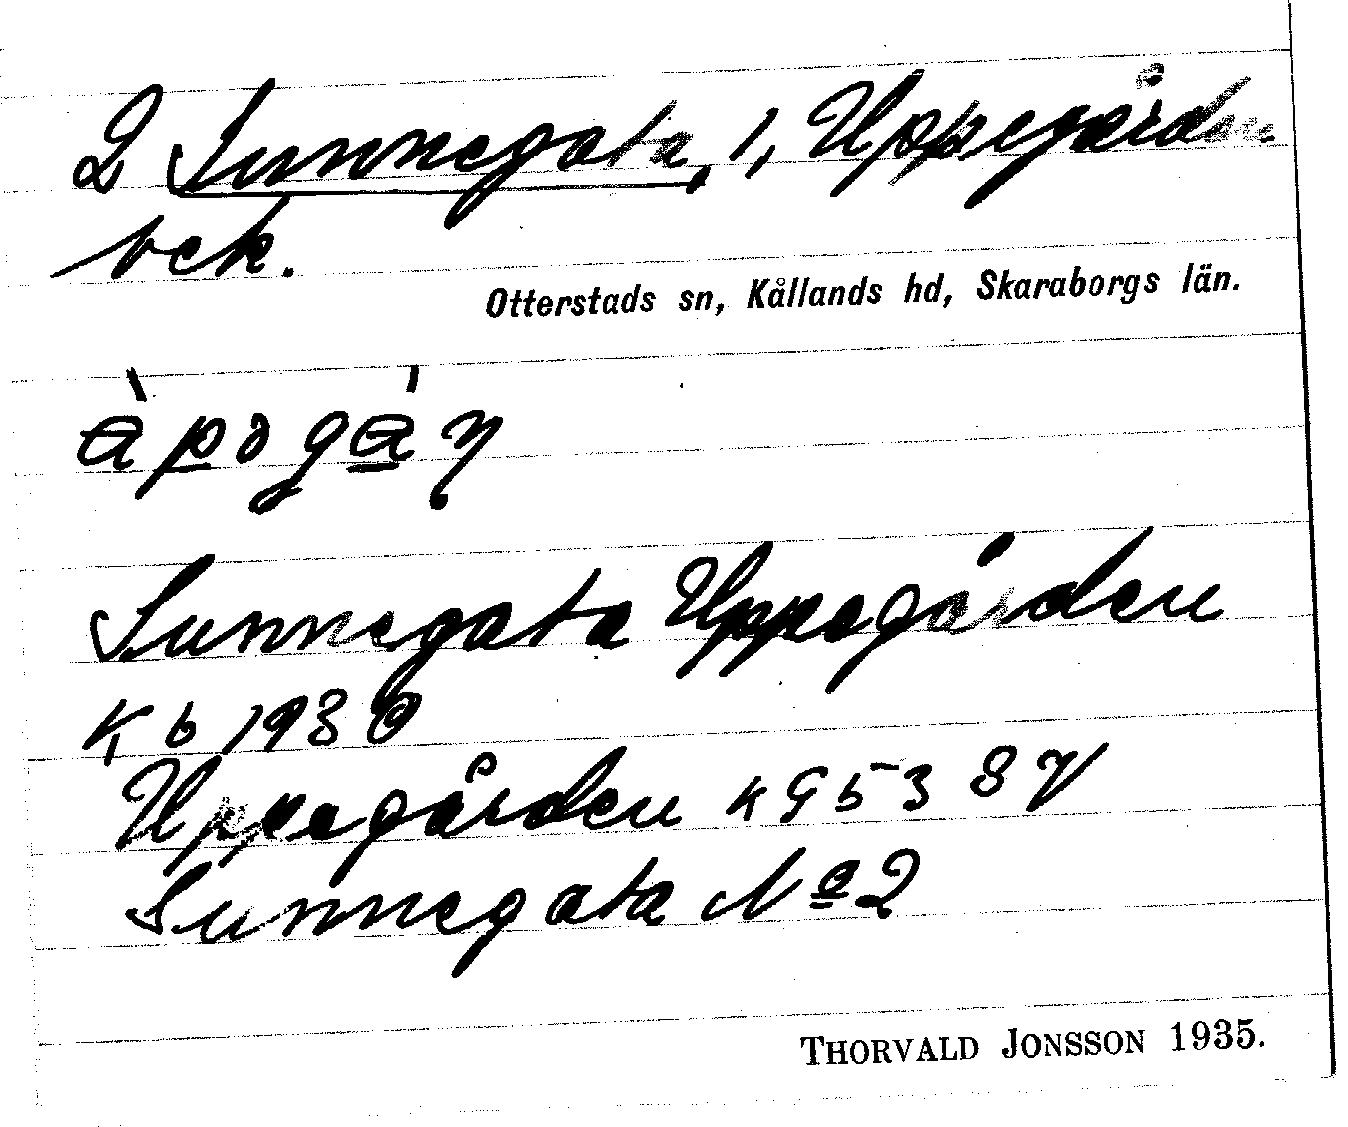 2 Sunnegata, 1, Uppegården
bek.
Otterstads sn, Kållands hd, Skaraborgs län.
Sunnegata Uppegården
Kb 1930
Uppegården KG 53 SV
Sunnegata No 2
THORVALD JONSSON 1935.